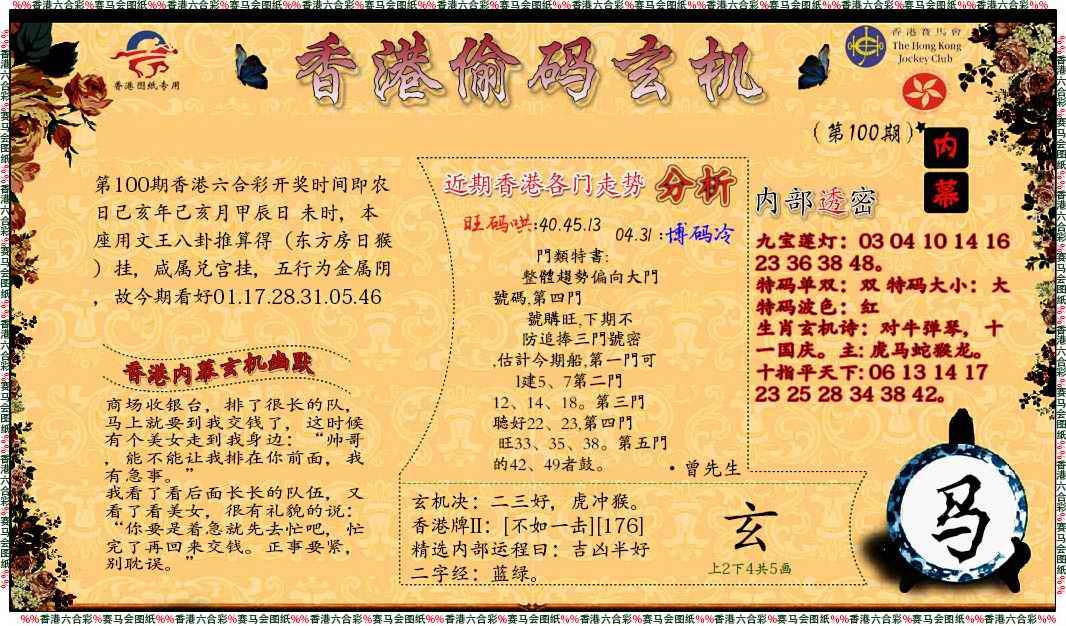 %%香港六合彩%赛马会图纸%%香港六合彩%赛马会图纸%%香港六合彩%赛马会图纸%%香港六合彩%赛马会图纸%%香港六合彩%赛马会图纸%%香港六合彩%赛马会图纸%%香港六合彩%赛马会图纸%%香港六合彩%%
香港图纸专用
香港偷码玄机
香港賽馬會
The Hong Kong
Jockey Club
(第100期)
内
幕
第100期香港六合彩开奖时间即农
日己亥年己亥月甲辰日 未时，本
座用文王八卦推算得（东方房日猴
）挂，咸属兑宫挂，五行为金属阴
，故今期看好01.17.28.31.05.46
香港内幕玄机幽默
商场收银台，排了很长的队，
马上就要到我交钱了，这时候
有个美女走到我身边：“帅哥
，能不能让我排在你前面，我
有急事。”
我看了看后面长长的队伍，又
看了看美女，很有礼貌的说：
“你要是着急就先去忙吧，忙
完了再回来交钱。正事要紧，
别耽误。”
近期香港各门走势 分析
旺码哄:40.45.13 04.31:博码冷
門類特書:
整體趨勢偏向大門
號碼,第四門
號購旺,下期不
防追捧三門號密
,估計今期船,第一門可
1建5、7第二門
12、14、18。第三門
聽好22、23,第四門
旺33、35、38。第五門
的42、49者鼓。
·曾先生
玄机决：二三好，虎冲猴。
香港牌II：[不如一击][176]
精选内部运程曰：吉凶半好
二字经：蓝绿。
玄
上2下4共5画
内部透密
九宝莲灯：03 04 10 14 16
23 36 38 48。
特码单双：双 特码大小：大
特码波色：红
生肖玄机诗：对牛弹琴，十
一国庆。主:虎马蛇猴龙。
十指平天下:06 13 14 17
23 25 28 34 38 42。
马
%%香港六合彩%赛马会图纸%%香港六合彩%赛马会图纸%%香港六合彩%赛马会图纸%%香港六合彩%赛马会图纸%%香港六合彩%赛马会图纸%%香港六合彩%赛马会图纸%%香港六合彩%赛马会图纸%%香港六合彩%%